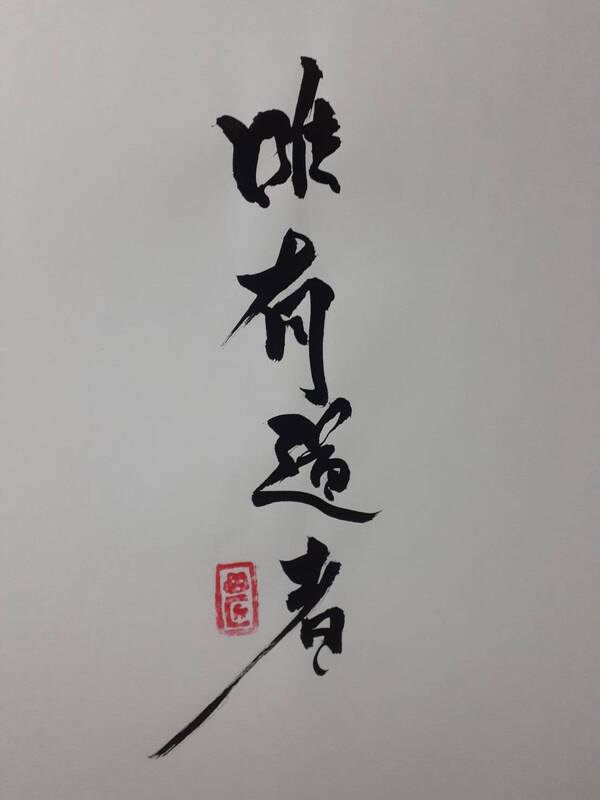 唯有道者